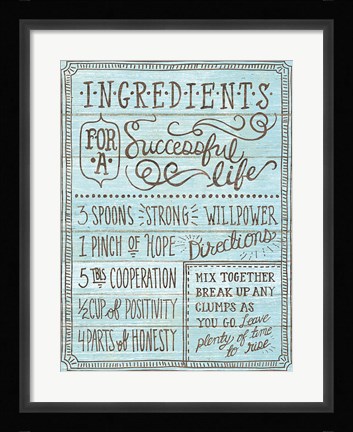 INGREDIENTS
FOR A
Successful
life
3 SPOONS STRONG WILLPOWER
1 PINCH OF HOPE
5 TBLS COOPERATION
1/2 CUP of POSITIVITY
4 PARTS of HONESTY
Directions
MIX TOGETHER
BREAK UP ANY
CLUMPS AS
YOU GO. Leave
plenty of time
to rise.